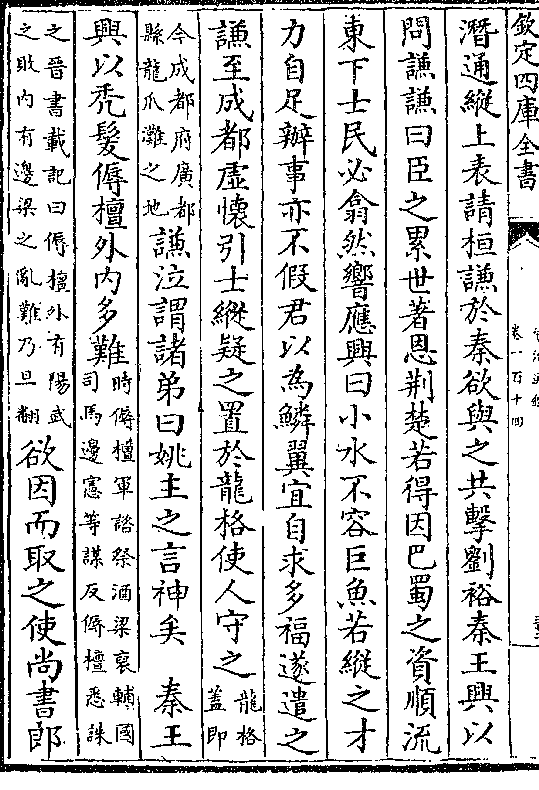 欽定四庫全書
卷一百十四
潛通縱上表請桓謙於秦欲與之共擊劉裕秦王興以
問謙謙曰臣之累世著恩荆楚若得因巴蜀之資順流
東下士民必翕然響應興曰小水不容巨魚若縱之才
力自足辦事亦不假君以為鱗翼宜自求多福遂遣之
謙至成都虛懷引士縱疑之置於龍格使人守之
龍格
蓋即
今成都府廣都
縣龍爪灘之地
謙泣謂諸弟曰姚主之言神矣 秦王
興以秃髮傉檀外内多難
時傉檀軍諮祭酒梁裒輔國
司馬邊憲等謀反傉檀悉誅
之晉書載記曰傉檀外有陽武
之敗内有邊梁之亂難乃旦翻
欲因而取之使尚書郎